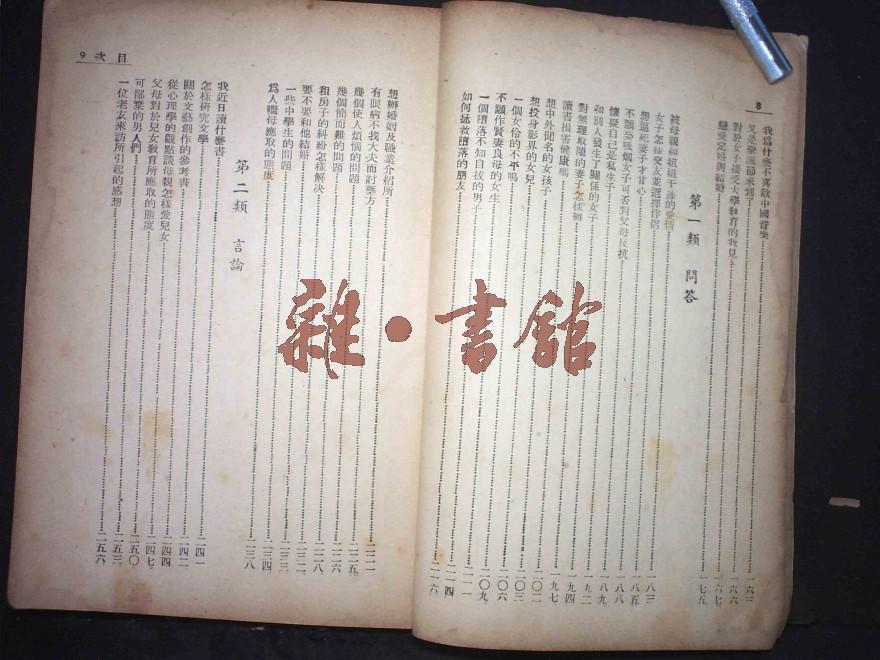 8
我爲什麽不喜歡中國音樂……一六三
又是聖誕節來到了……一六六
對於女子接受大學教育的我見……一六七
戀愛定婚與結婚……一七五
第一類 問答
被母親和姐姐干涉的愛情……一八三
女子怎樣交友並選擇伴侶……一八五
想逼死妻子才甘心……一八八
不願受吸烟女子可否對父母反抗……一八九
懷疑自己是私生子……一九二
和別人發生了關係的女子……一九四
對無理取鬧的妻子怎樣辦……一九七
讀書損害健康嗎……二〇一
想中外聞名的女孩子……二〇三
想投身影界的女兒……二〇六
一個女伶的不平鳴……二〇九
不願作賢妻良母的女生……二一一
一個墮落不知自拔的男子……二一四
如何拯救墮落的朋友……二一六
目次 9
想辦婚姻及職業介紹所……二二一
有眼病不找大夫而討藥方……二二五
幾個使人煩惱的問題……二二六
幾個簡而難的問題……二二八
租房子的糾紛怎樣解决……二三二
要不要和他結婚……二三三
一些中學生的問題……二三四
爲人繼母應取的態度……二三八
第二類 言論
我近日讀什麽書……二四一
怎樣研究文學……二四二
關於文藝創作的參考書……
從心理學的觀點談母親怎樣愛兒女……二四七
父母對於兒女敎育所應取的態度……二五〇
可鄙棄的男人們……二五三
一位老友來訪所引起的感想……二五六
雜·書館